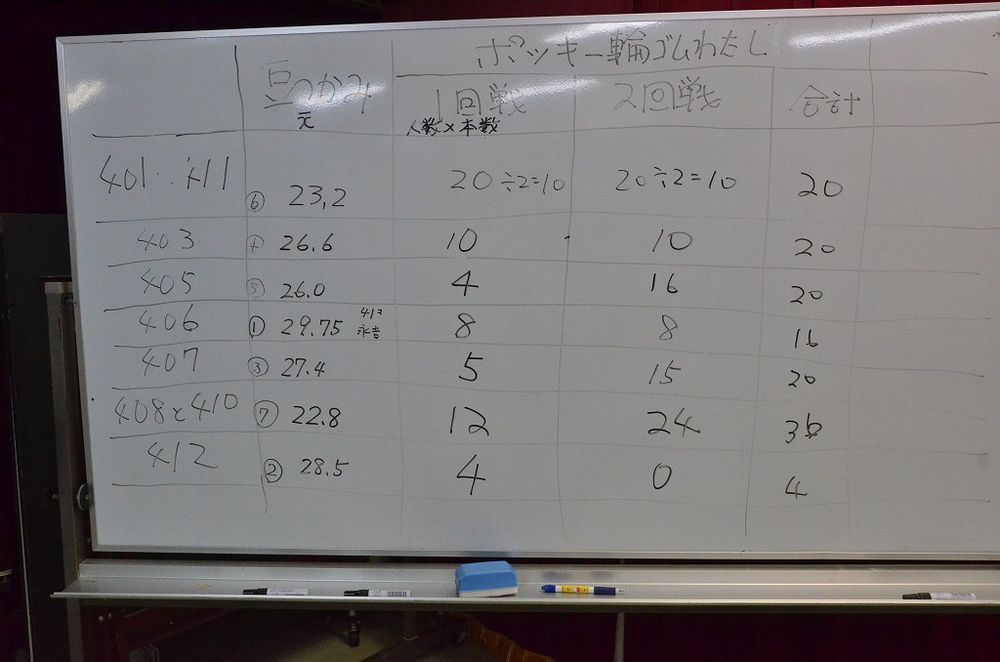 ポッキー輪ゴムわたし
豆つかみ 1回戦 2回戦 合計
元 人数×本数
401・411 ⑥ 23,2 20÷2=10 20÷2=10 20
403 ④ 26.6 10 10 20
405 ⑤ 26.0 4 16 20
406 ① 29.75 8 8 16
407 ③ 27.4 5 15 20
408と410 ⑦ 22.8 12 24 36
412 ② 28.5 4 0 4